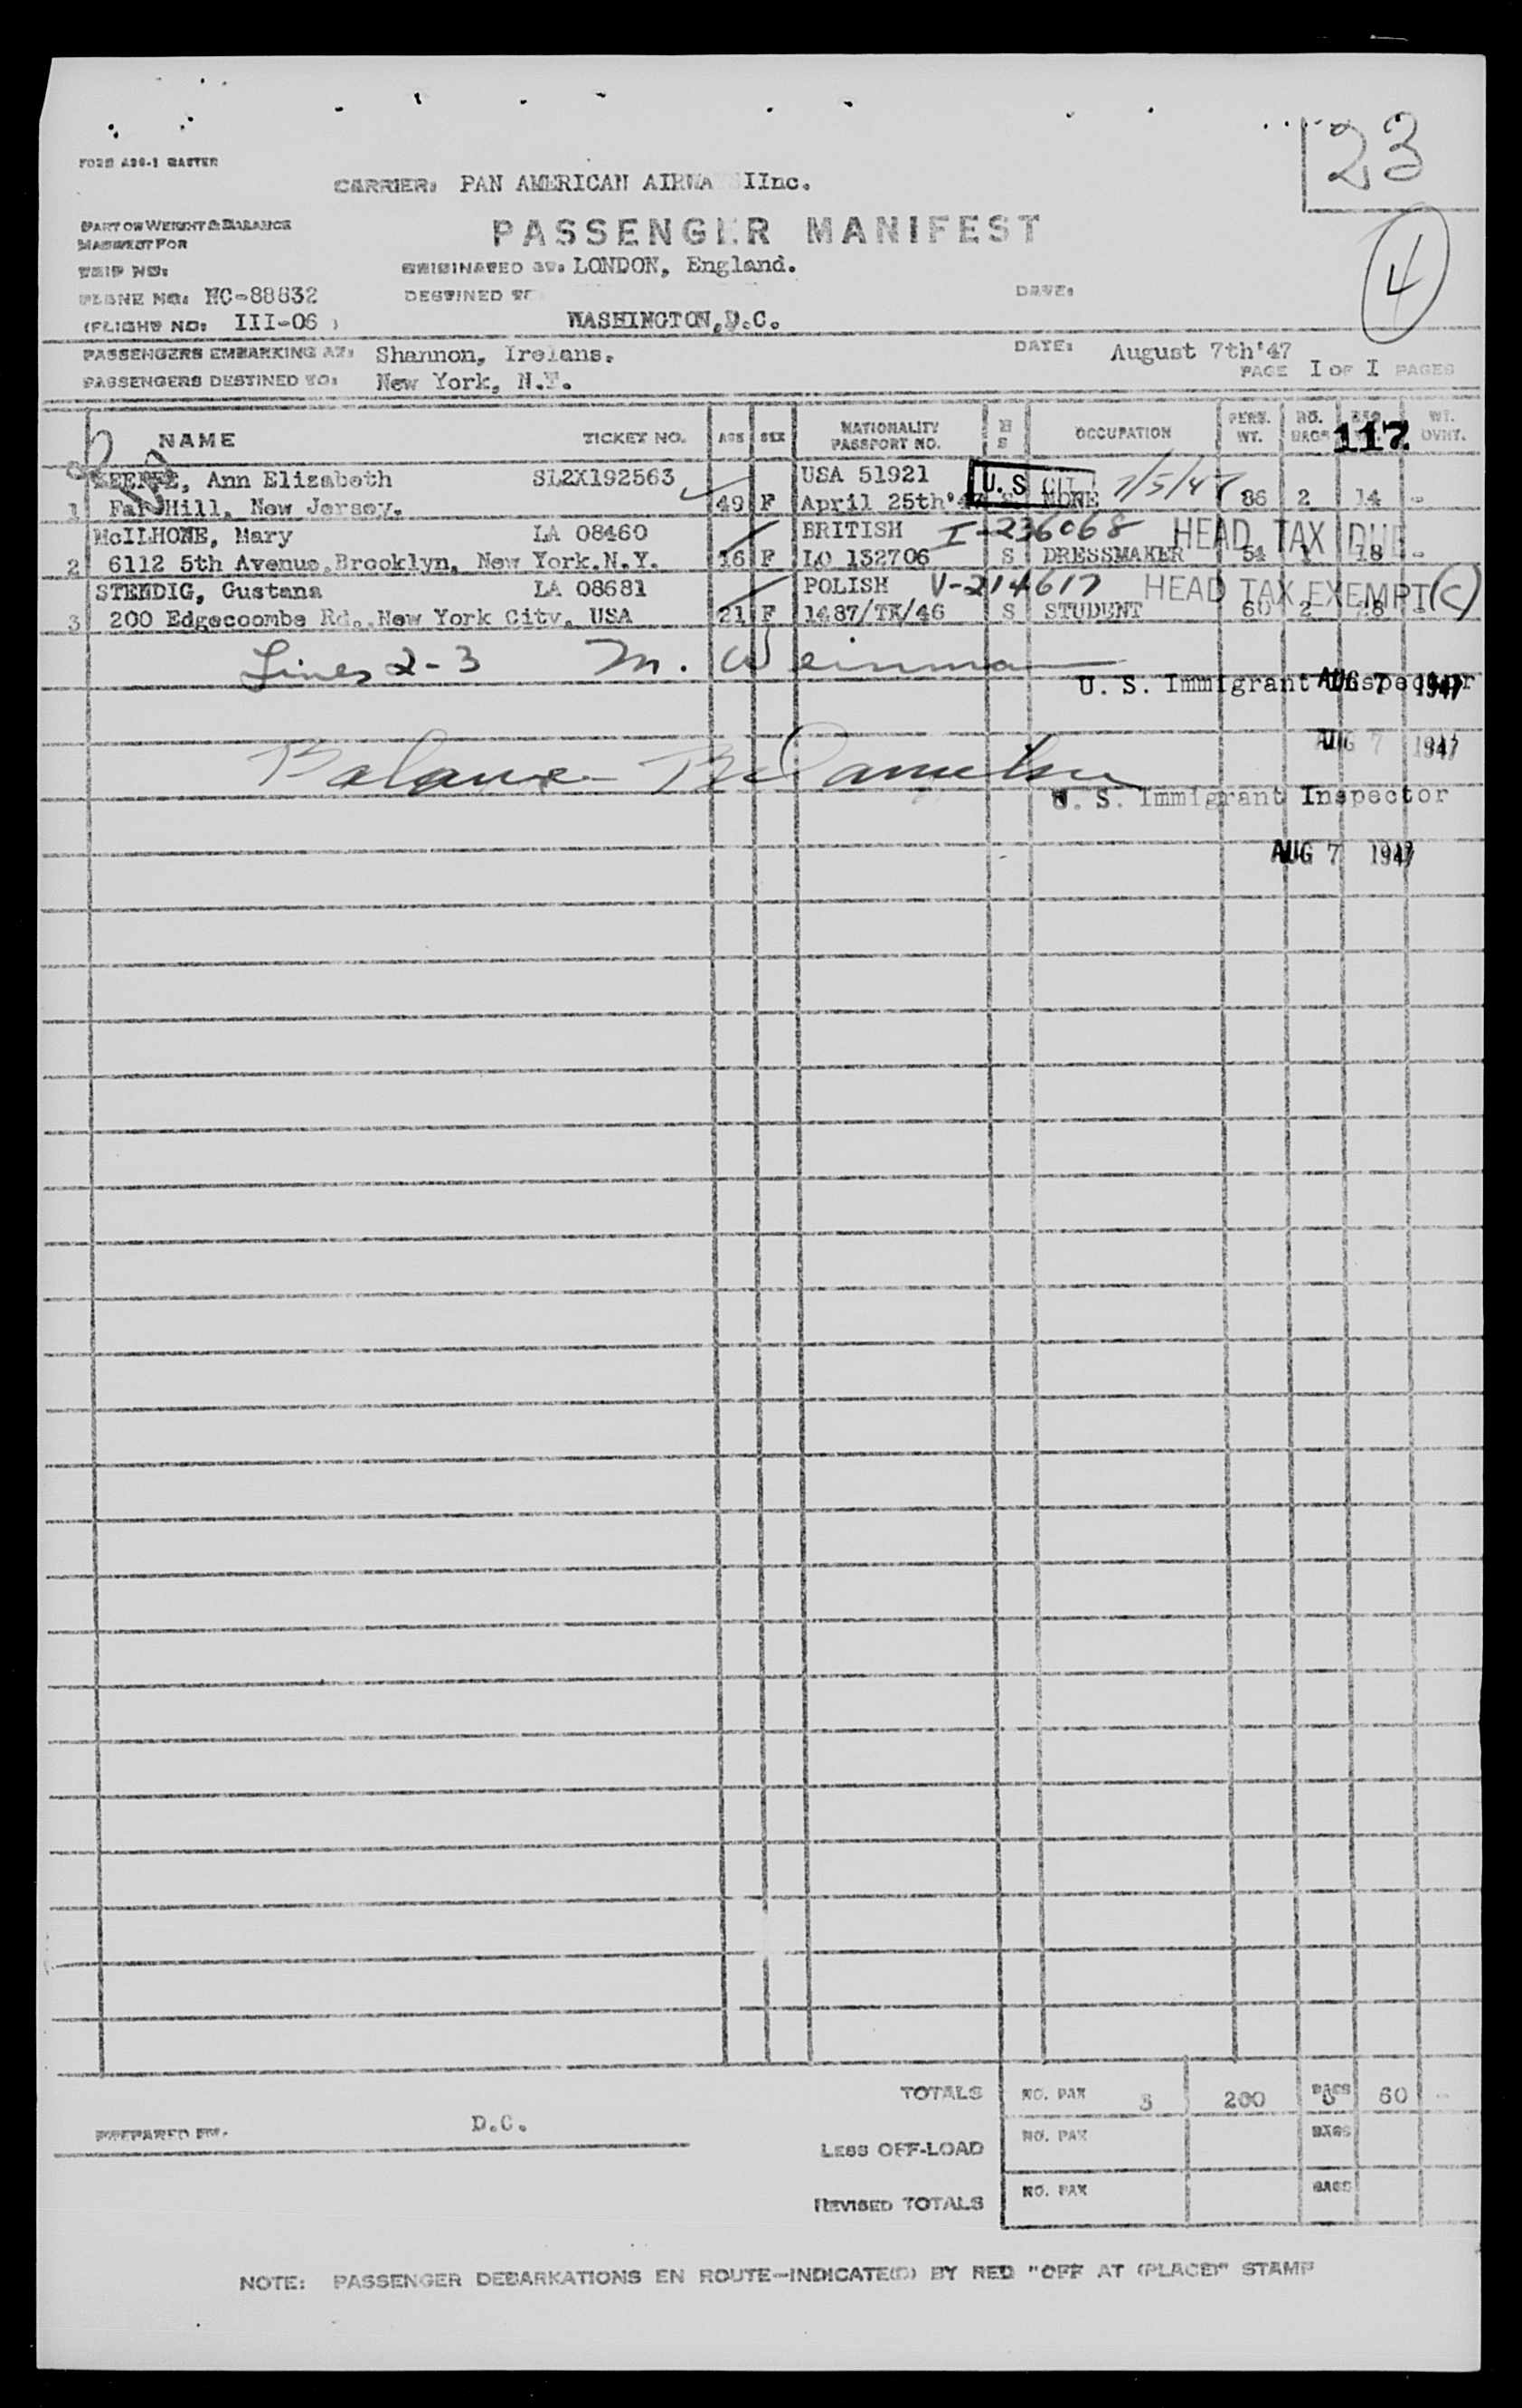 23
FORM A30-1 MASTER
CARRIER: PAN AMERICAN AIRWA IInc.
PART OF WEIGHT & BALANCE
MANIFEST FOR
PASSENGER MANIFEST
4
TRIP NO:
ORIGINATED AT: LONDON, England.
PLANE NO: NC-88832
DESTINED TO
DATE:
(FLIGHT NO: III-06 )
WASHINGTON, D.C.
PASSENGERS EMBARKING AT: Shannon, Irelans.
DATE: August 7th'47
PASSENGERS DESTINED TO: New York, N.Y.
PAGE I OF I PAGES
NAME TICKET NO. AGE SEX NATIONALITY PASSPORT NO. OCCUPATION PERS. WT. NO. BAGS 117 WT. OVHT.
Ann Elizabeth SL2X192563 USA 51921 U.S CIT
1 Far Hill, New Jersey. 49 F April 25th'47 NONE 86 2 14 -
McILHONE, Mary LA 08460 BRITISH I-236068 HEAD TAX DUE
2 6112 5th Avenue, Brooklyn, New York.N.Y. 16 F LO 132706 S DRESSMAKER 54 1 18 -
STENDIG, Gustana LA 08681 POLISH V-214617 HEAD TAX EXEMPT (C)
3 200 Edgecoombe Rd., New York City, USA 21 F 1487/TK/46 S STUDENT 60 2 28 -
Lines 2-3 M. Weinman
U. S. Immigrant Inspector AUG 7 1947
AUG 7 1947
Balance
U. S. Immigrant Inspector
AUG 7 1947
TOTALS NO. PAX 3 200 BAGS 60 -
PREPARED BY. D.C.
LESS OFF-LOAD NO. PAX BAGS
REVISED TOTALS NO. PAX BAGS
NOTE: PASSENGER DEBARKATIONS EN ROUTE-INDICATE(D) BY RED "OFF AT (PLACE)" STAMP